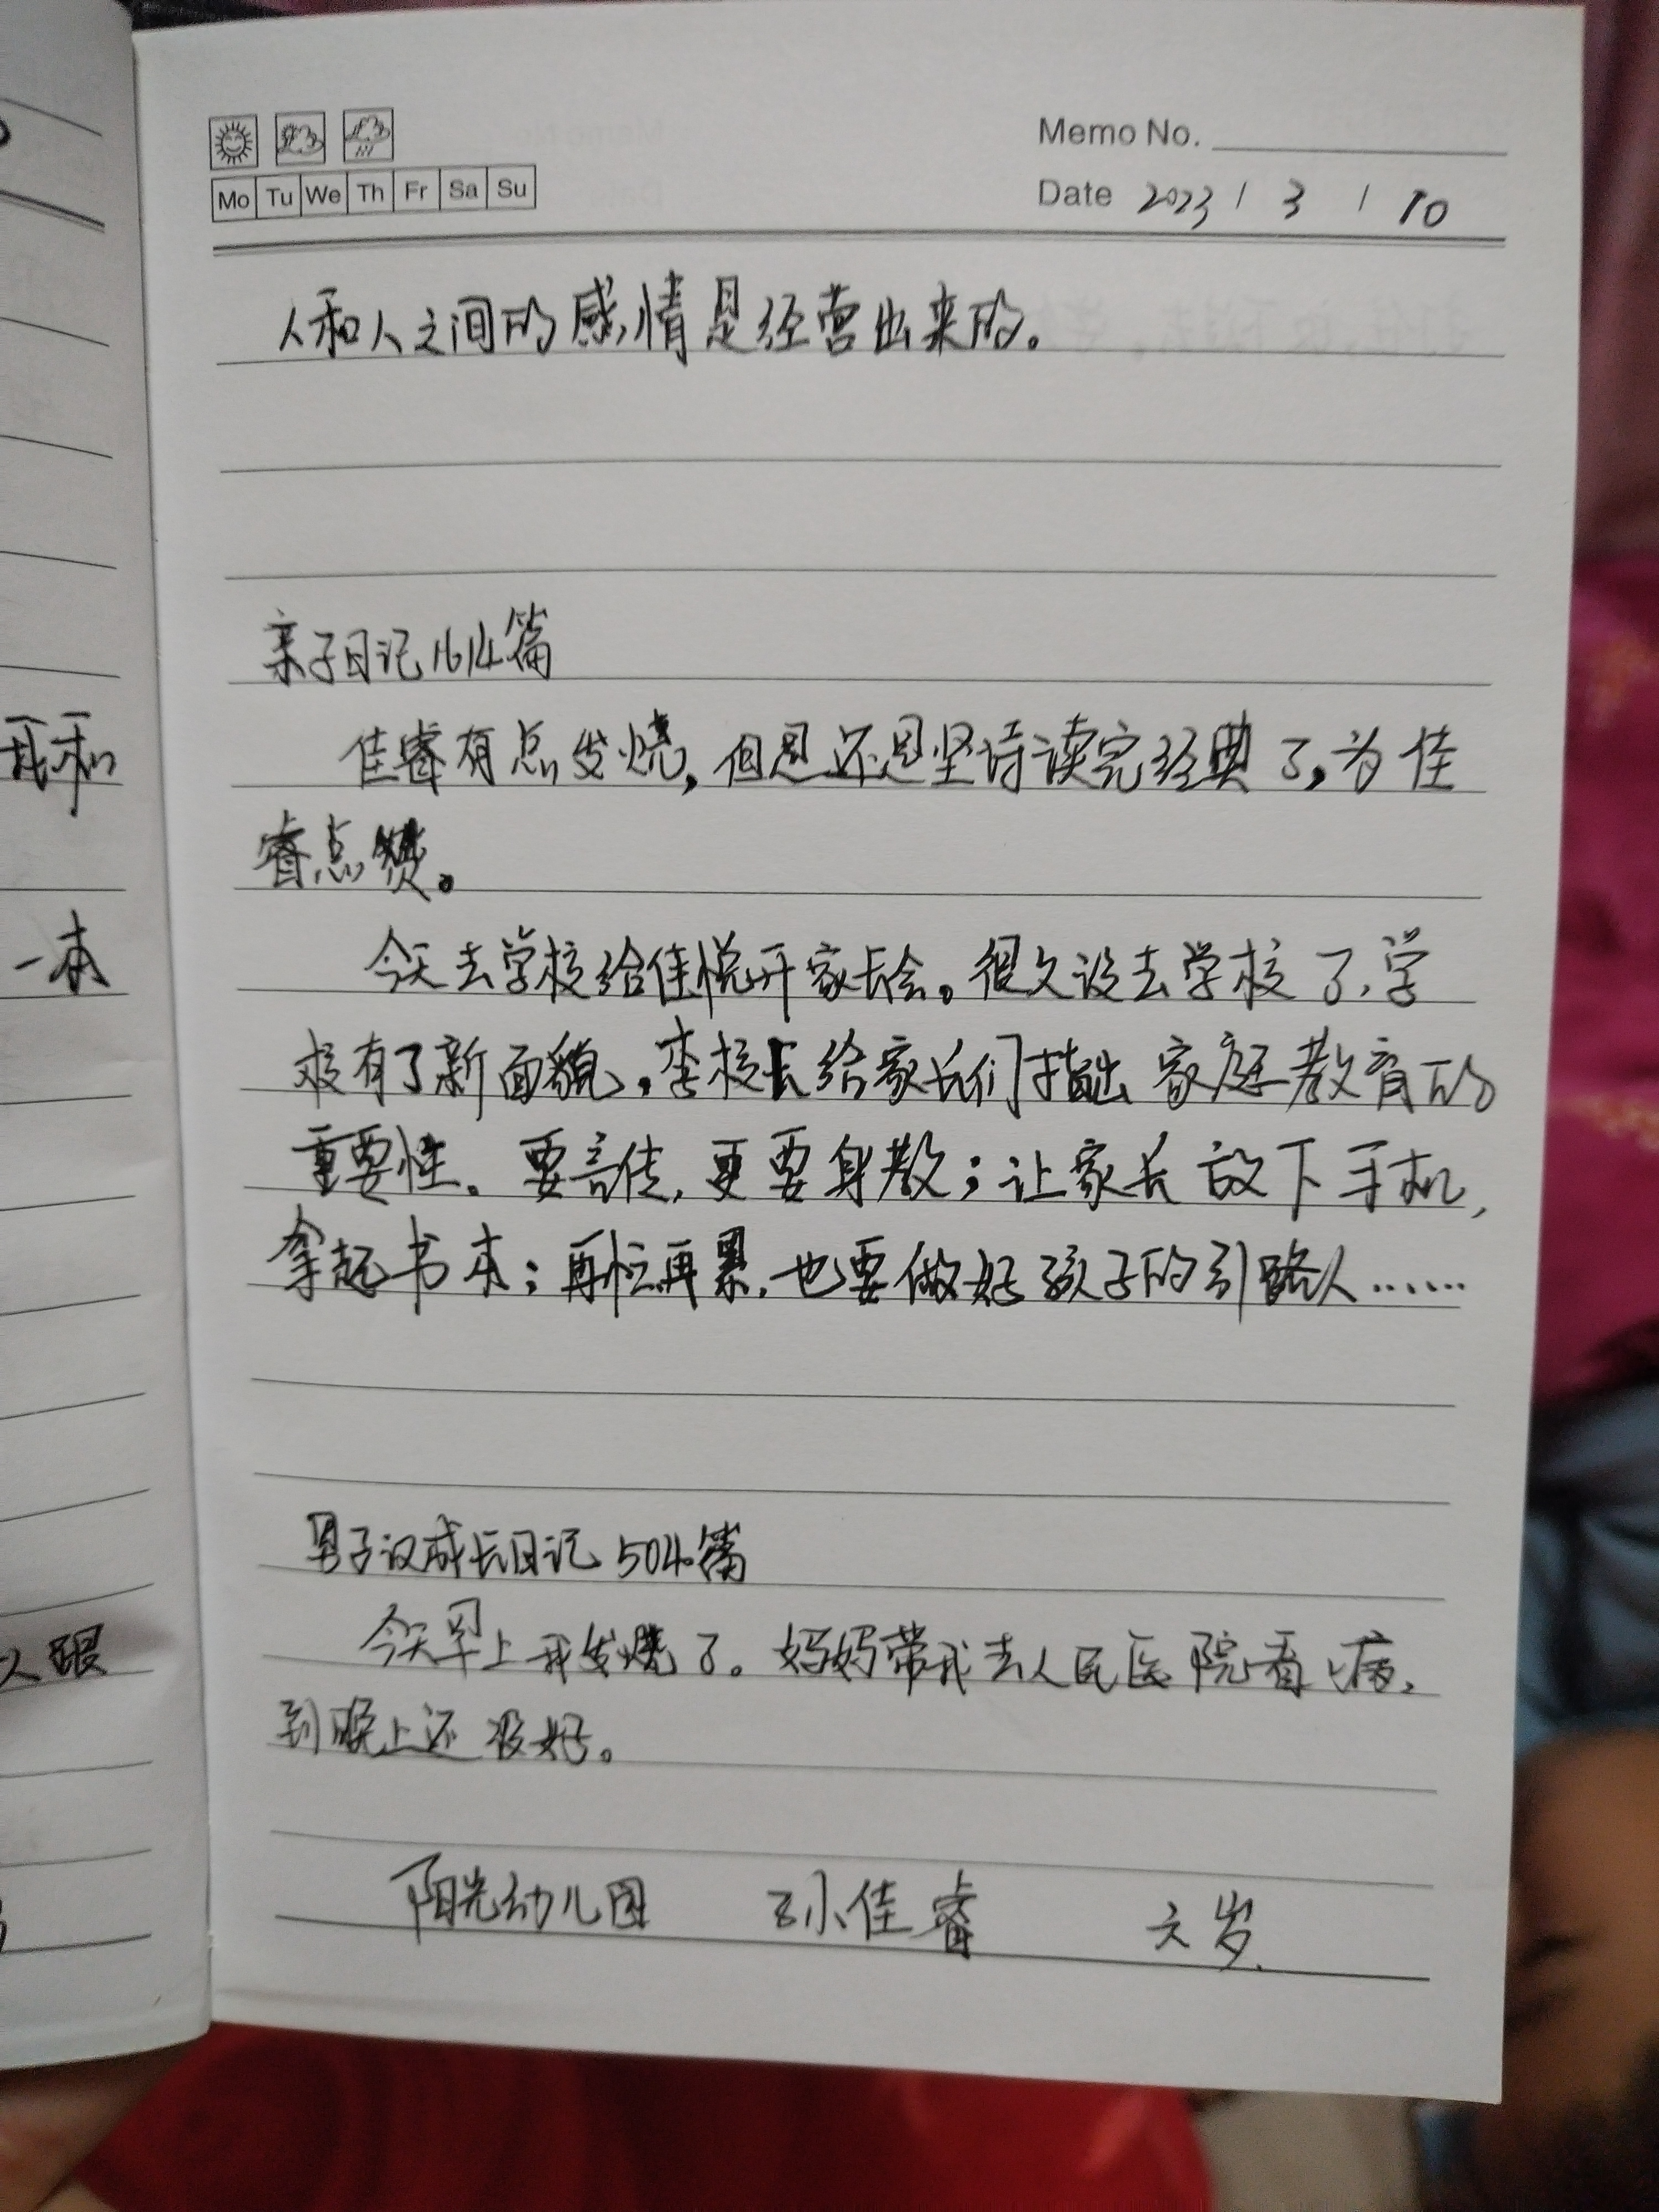 我和
一本
人跟
Memo No.
Mo Tu We Th Fr Sa Su
Date 2023 / 3 / 10
人和人之间的感情是经营出来的。
亲子日记1614篇
佳睿有点发烧,但是还是坚持读完经典了,为佳
睿点赞。
今天去学校给佳悦开家长会。很久没去学校了,学
校有了新面貌。李校长给家长们指出家庭教育的
重要性。要言传,更要身教;让家长放下手机,
拿起书本;再忙再累,也要做好孩子的引路人……
男子汉成长日记504篇
今天早上我发烧了。妈妈带我去人民医院看病,
到晚上还没好。
阳光幼儿园 孙佳睿 六岁.